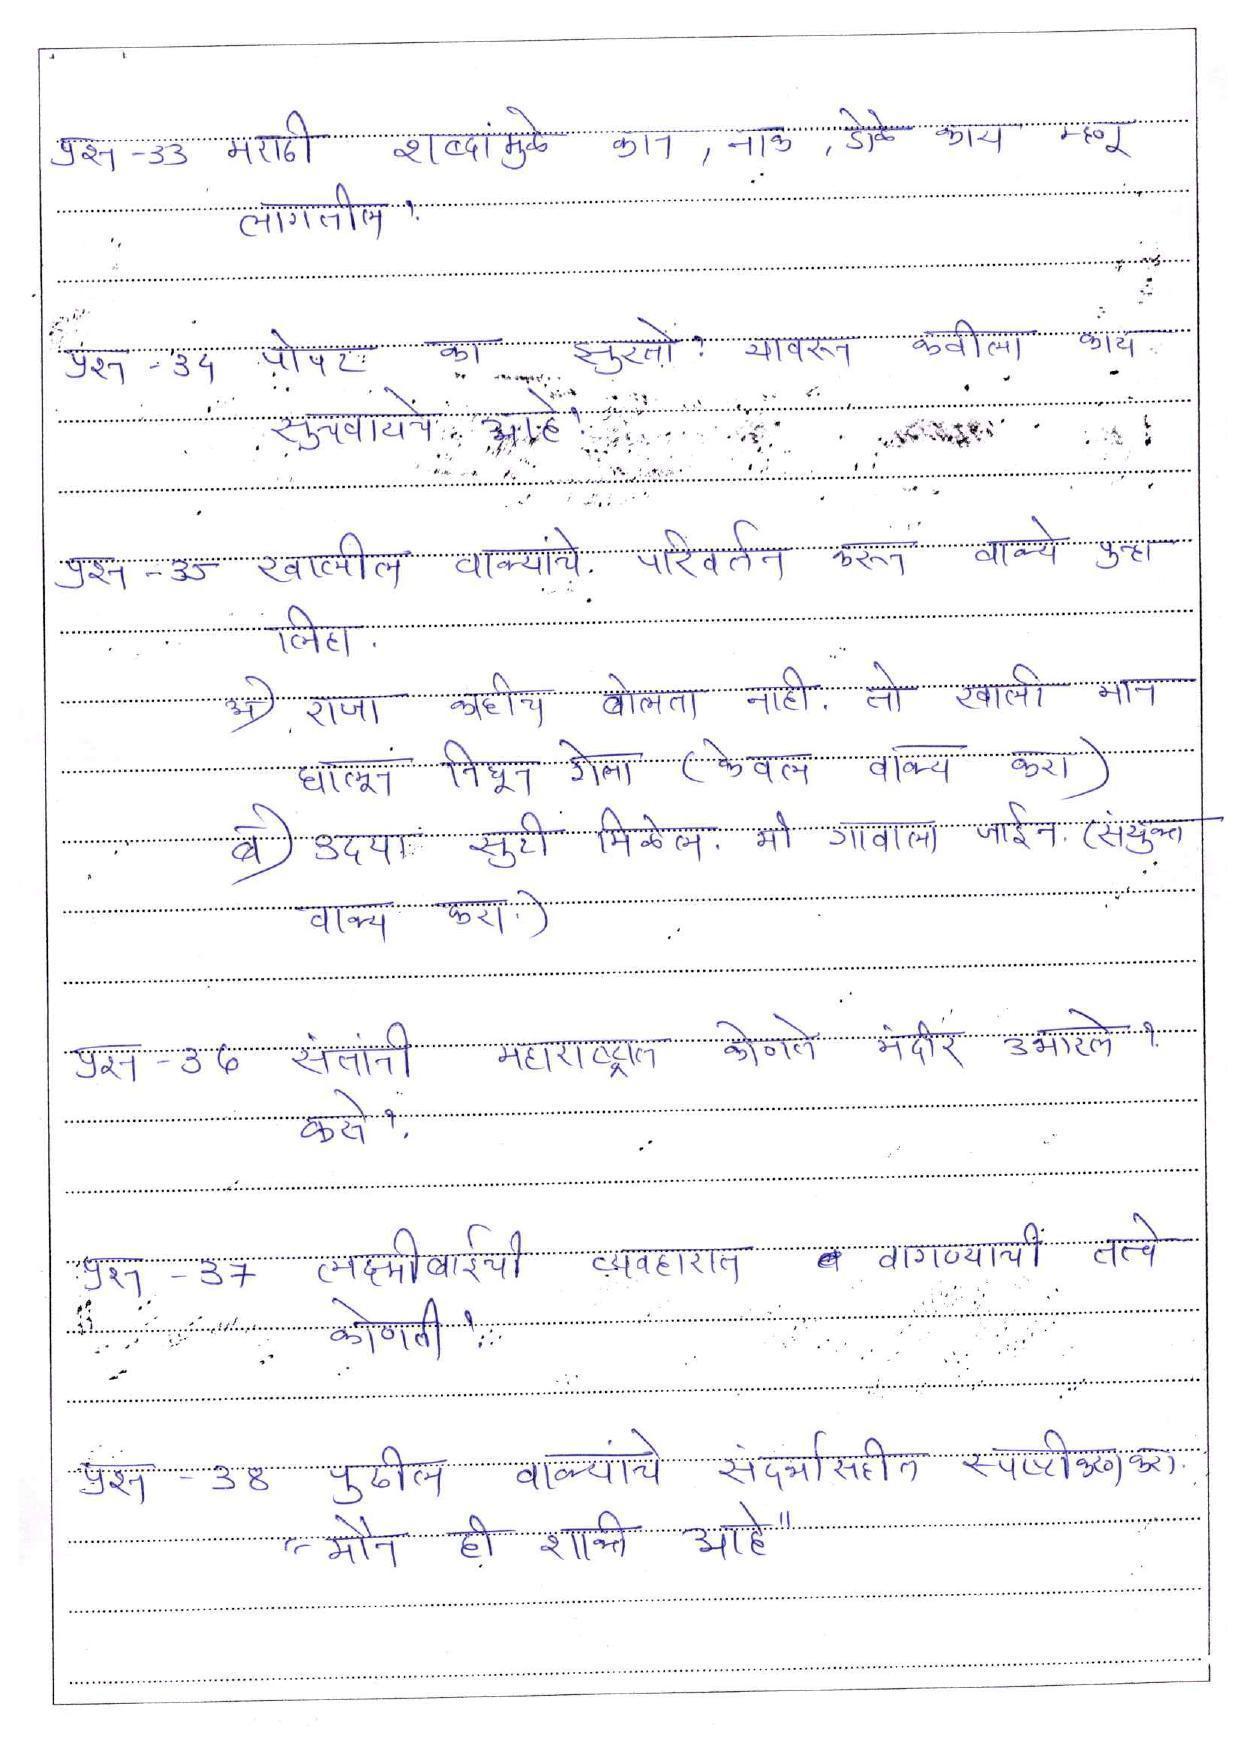 प्रश्न -33 मराठी शब्दांमुळे कान, नाक, डोळे काय म्हणू
लागतील ?
प्रश्न -34 पोपट का झुरतो ? यावरून कवीला काय
सुचवायचे आहे ?
प्रश्न -35 खालील वाक्यांचे परिवर्तन करून वाक्ये पुन्हा
लिहा.
अ) राजा काहीच बोलता नाही. तो खाली मान
घालून निघून गेला (केवल वाक्य करा)
ब) उदया सुटी मिळेल. मी गावाला जाईन. (संयुक्त
वाक्य करा.)
प्रश्न -36 संतांनी महाराष्ट्रात कोणते मंदीर उभारले ?
कसे ?
प्रश्न -37 लक्ष्मीबाईची व्यवहारात वागण्याची तत्वे
कोणती ?
प्रश्न -38 पुढील वाक्यांचे संदर्भासहीत स्पष्टीकरण करा.
"मौन ही शक्ती आहे"